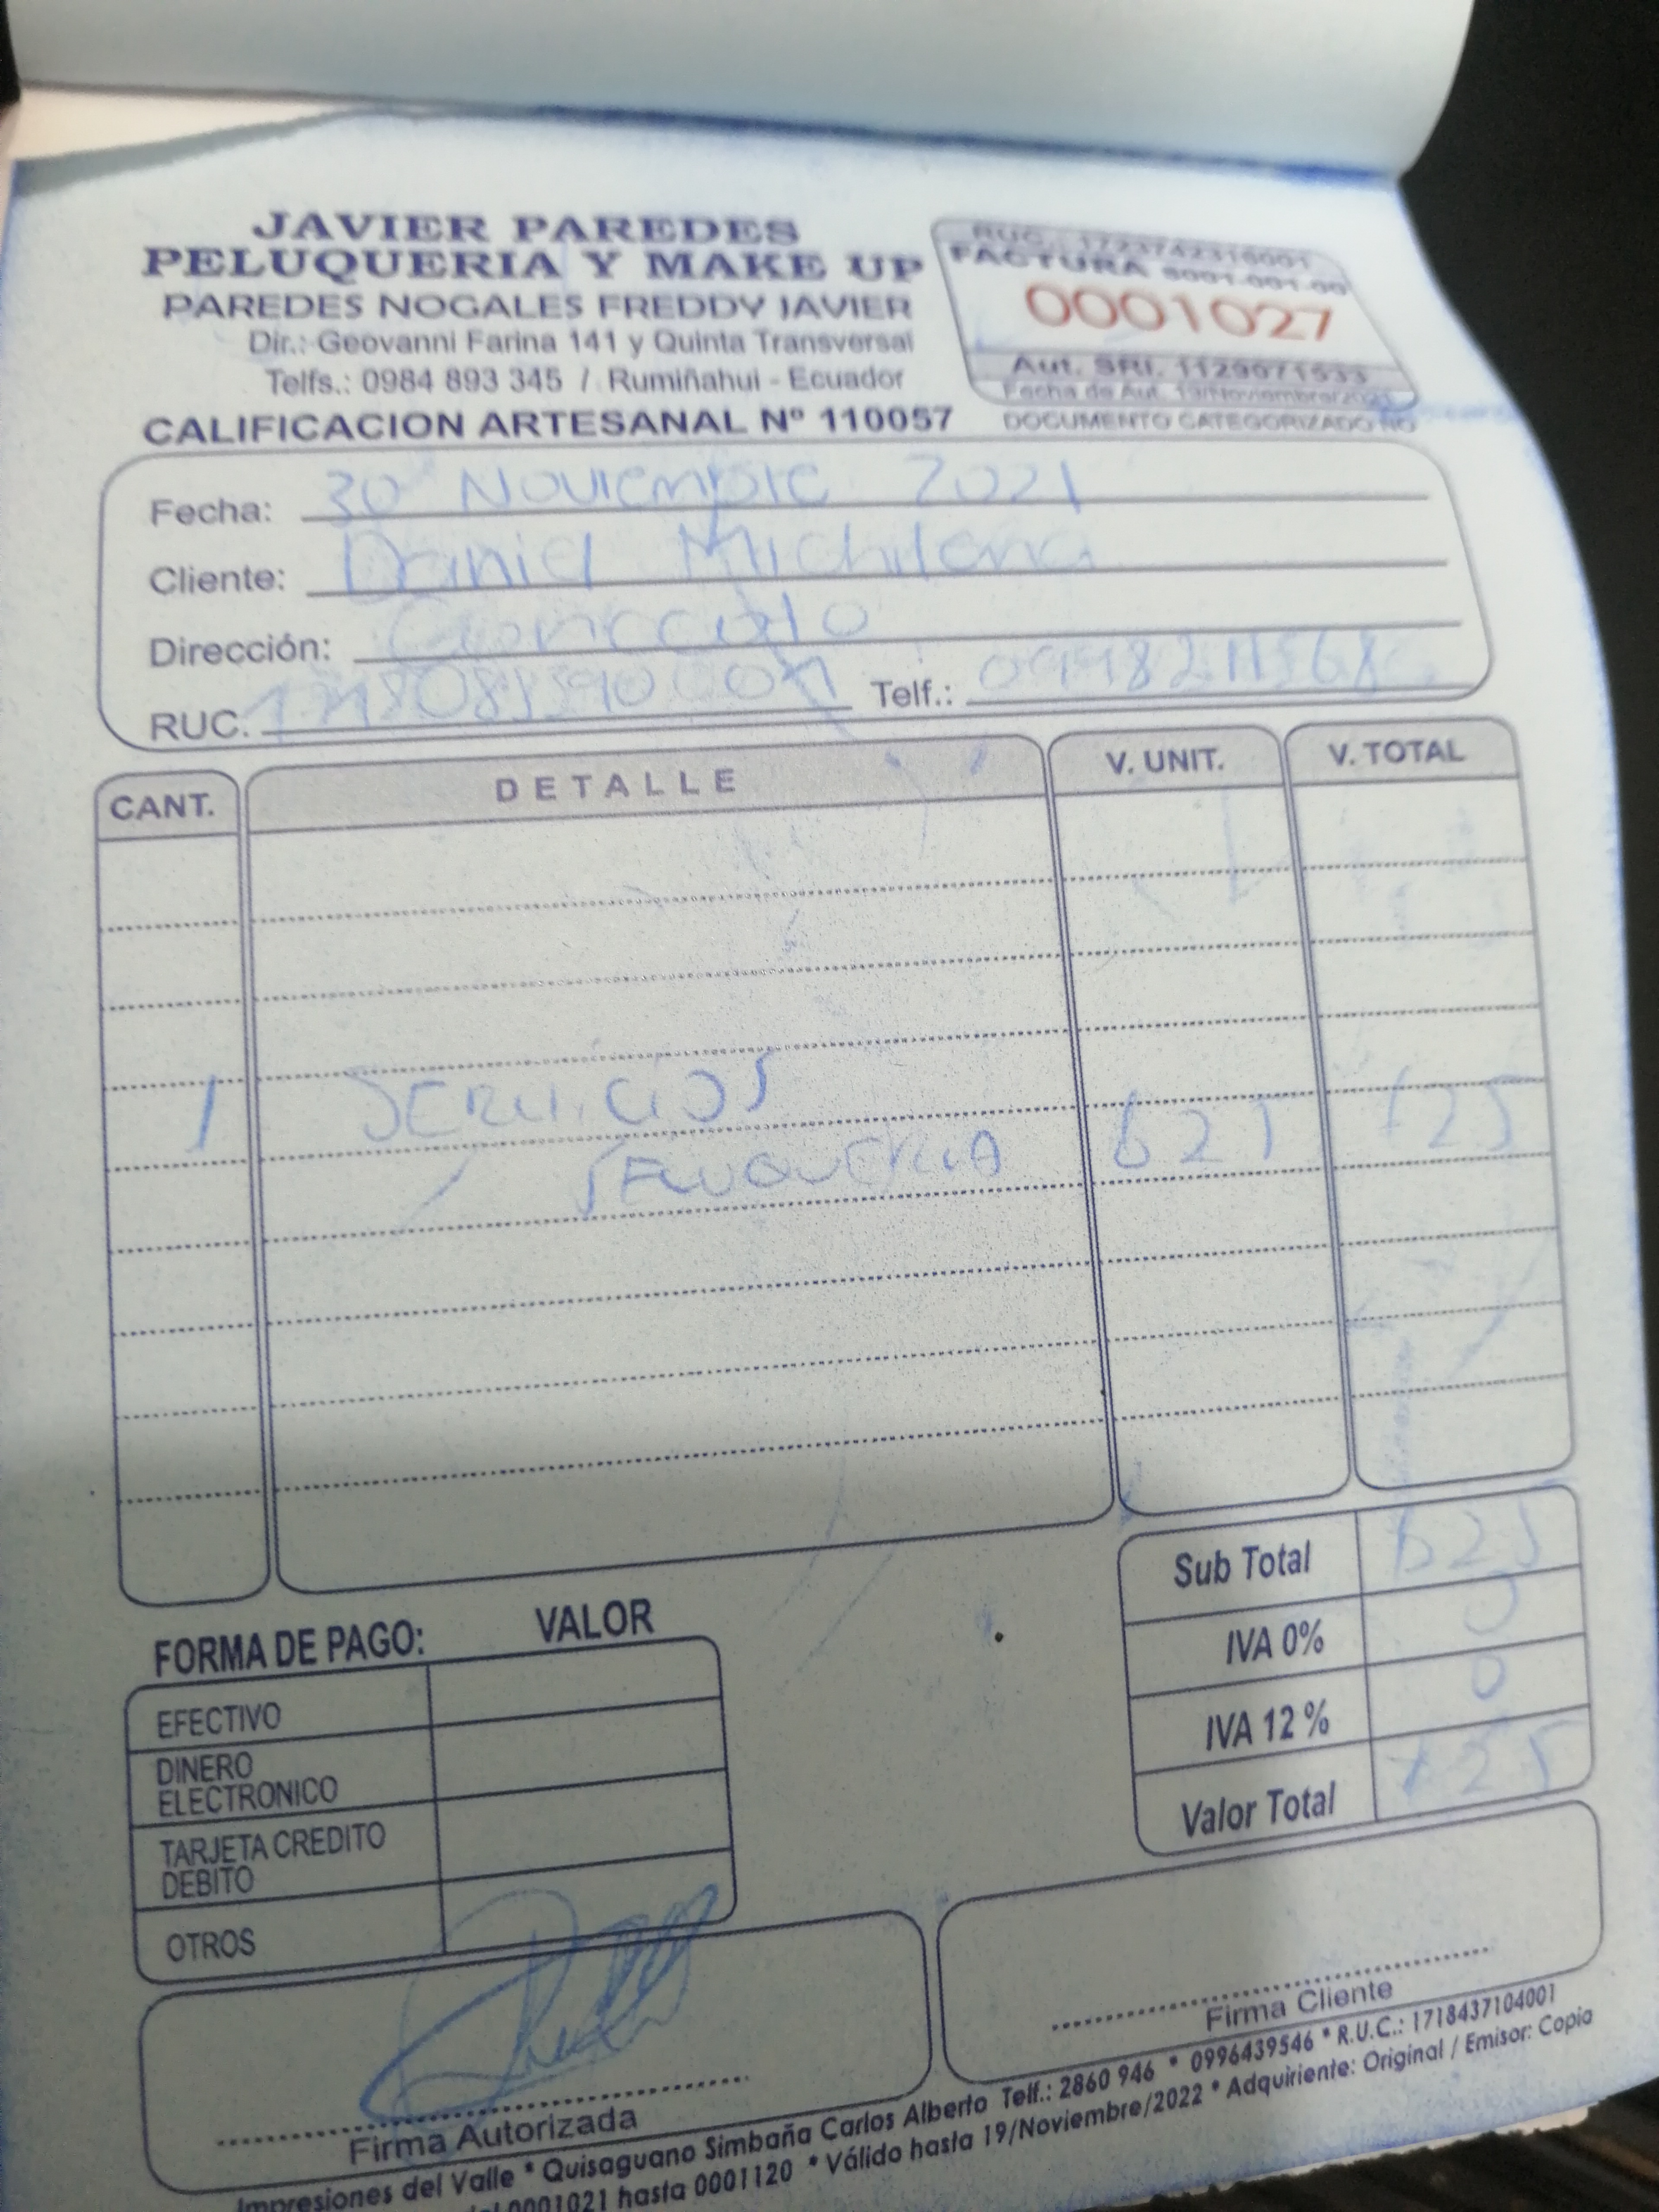 JAVIER PAREDES
PELUQUERIA Y MAKE UP
PAREDES NOGALES FREDDY JAVIER
Dir.: Geovanni Farina 141 y Quinta Transversal
Telfs.: 0984 893 345 / Rumiñahui - Ecuador
CALIFICACION ARTESANAL Nº 110057
RUC.: 1723742316001
FACTURA S001-001-00
0001027
Aut. SRI. 1129971533
Fecha de Aut. 19/Noviembre/2021
DOCUMENTO CATEGORIZADO NO
Fecha: 30 Noviembre 2021
Cliente: Daniel Michilena
Dirección:
RUC.
Telf.:
CANT. DETALLE V. UNIT. V. TOTAL
1 SERVICIOS
PELUQUERIA 625 625
Sub Total 625
IVA 0% 0
IVA 12 % 0
Valor Total 625
FORMA DE PAGO: VALOR
EFECTIVO
DINERO
ELECTRONICO
TARJETA CREDITO
DEBITO
OTROS
Firma Autorizada
Firma Cliente
Impresiones del Valle * Quisaguano Simbaña Carlos Alberto Telf.: 2860 946 * 0996439546 * R.U.C.: 1718437104001
del 0001021 hasta 0001120 * Válido hasta 19/Noviembre/2022 * Adquiriente: Original / Emisor: Copia